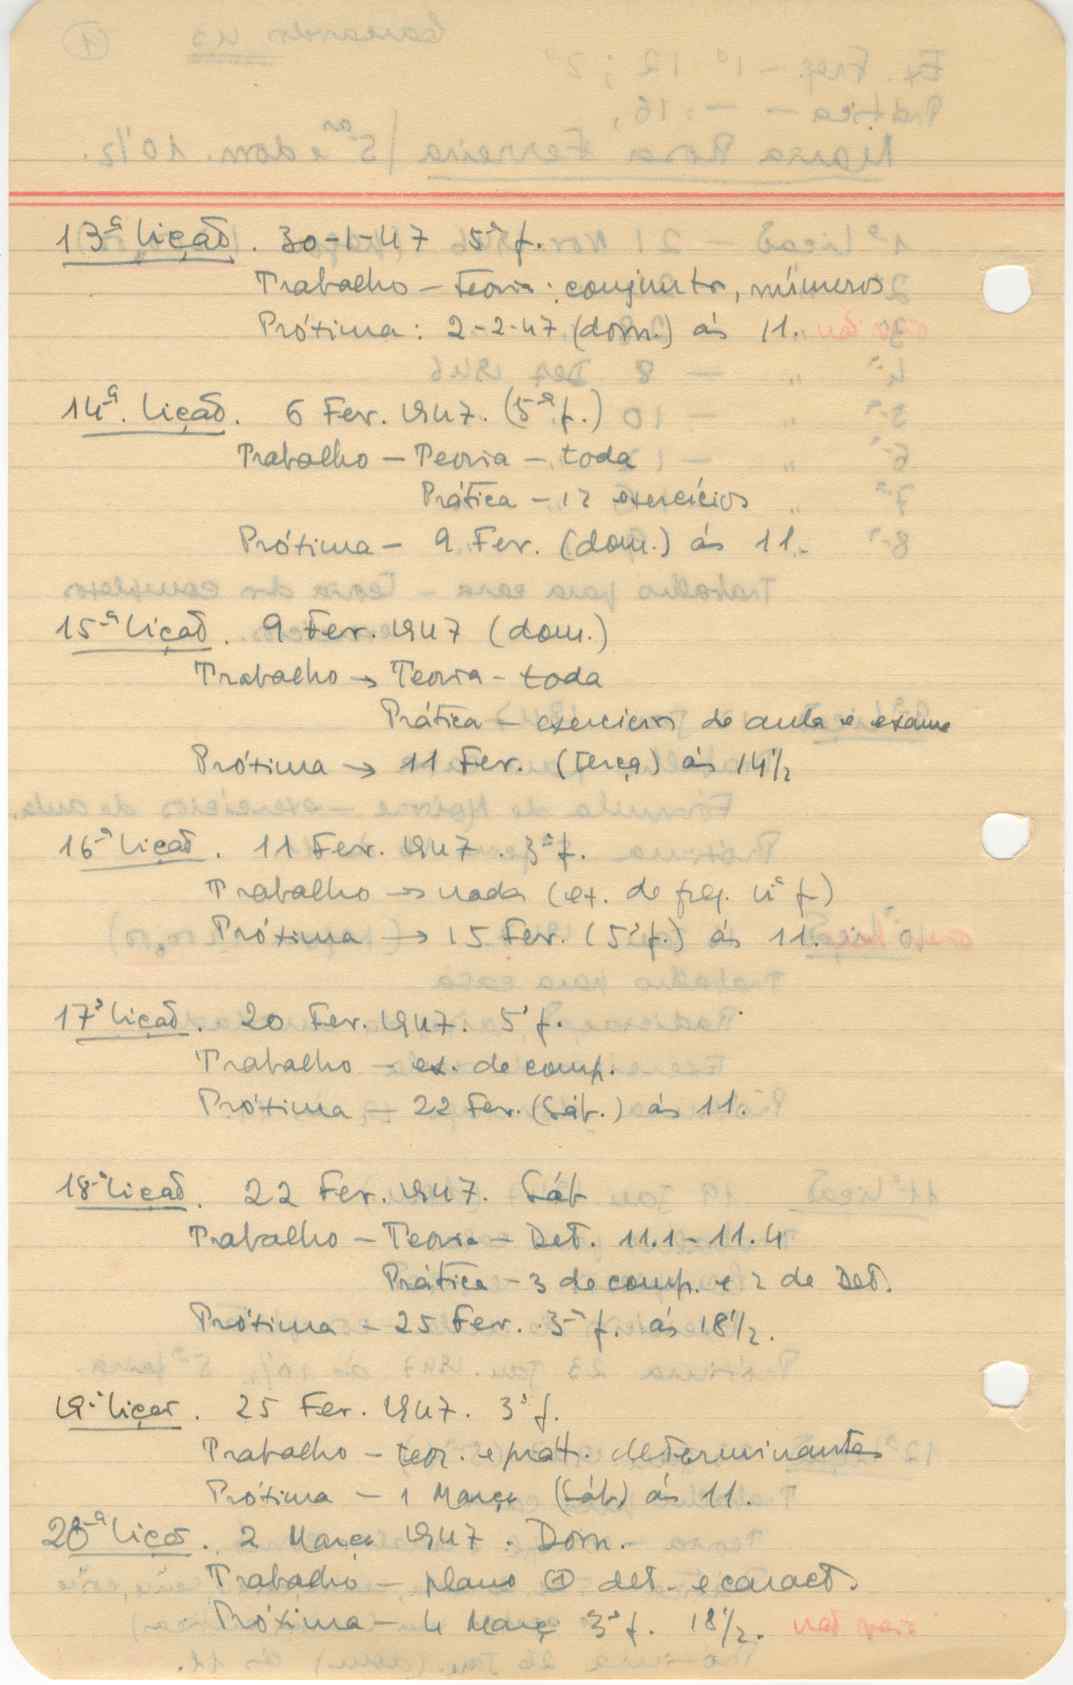 13ª lição. 30-1-47 5ª f.
Trabalho - Teoria: conjuntos, números
Próxima: 2-2-47 (dom.) ás 11.
14ª. lição. 6 Fev. 1947. (5ª f.)
Trabalho - Teoria - toda
Prática - 12 exercícios
Próxima - 9 Fev. (dom.) ás 11.
15ª lição. 9 Fev. 1947 (dom.)
Trabalho → Teoria - toda
Prática - exercicios de aula e exame
Próxima → 11 Fev. (terça) ás 14½
16ª lição. 11 Fev. 1947. 3ª f.
Trabalho → nada (ex. de freq. 4ª f)
Próxima → 15 Fev. (5ª f.) ás 11.
17ª lição. 20 Fev. 1947. 5ª f.
Trabalho - ex. de comp.
Próxima - 22 Fev. (Sáb.) ás 11.
18ª lição. 22 Fev. 1947. Sáb
Trabalho - Teoria - Det. 11.1 - 11.4
Prática - 3 de comp. e 2 de Det.
Próxima - 25 Fev. 3ª f. ás 18½.
19ª lição. 25 Fev. 1947. 3ª f.
Trabalho - teor. e prát. determinantes
Próxima - 1 Março (Sáb) ás 11.
20ª lição. 2 Março 1947. Dom.
Trabalho - plano ① det. e caract.
Próxima - 4 Março 3ª f. 18½.